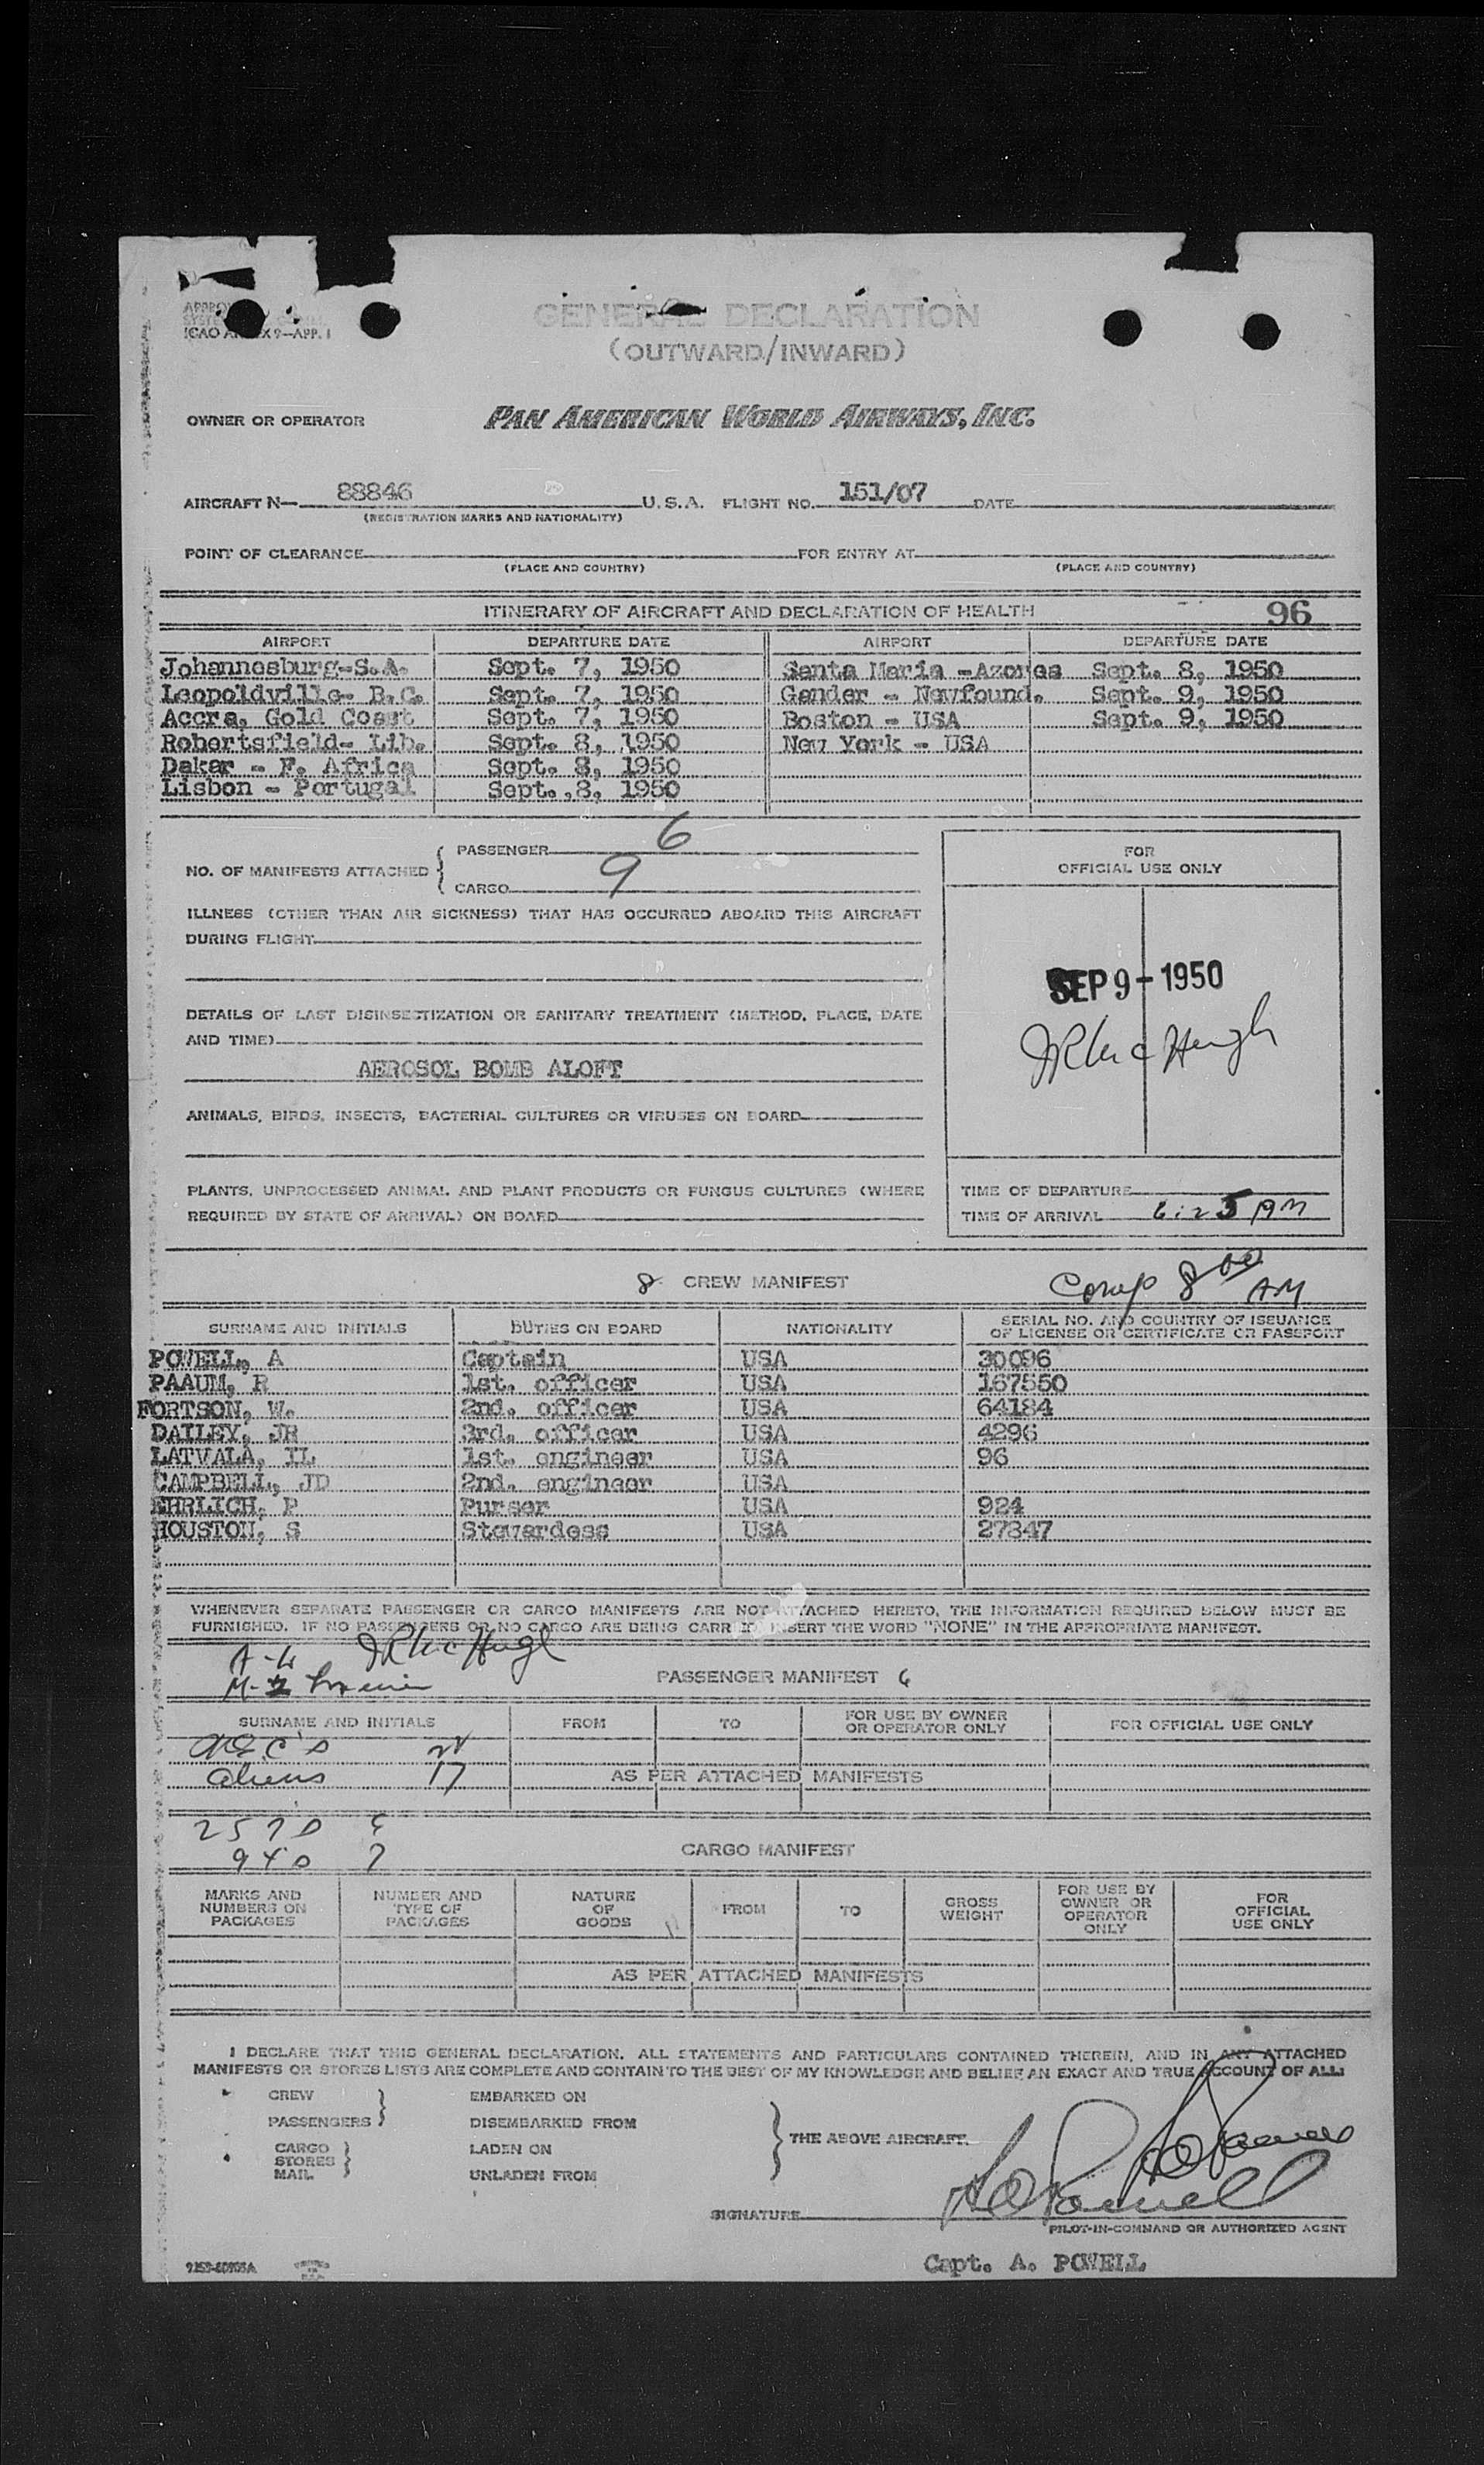 ICAO
X 9—APP. I
GENERAL DECLARATION
(OUTWARD/INWARD)
OWNER OR OPERATOR PAN AMERICAN WORLD AIRWAYS, INC.
AIRCRAFT N— 88846 U.S.A. FLIGHT NO. 151/07 DATE
(REGISTRATION MARKS AND NATIONALITY)
POINT OF CLEARANCE FOR ENTRY AT
(PLACE AND COUNTRY) (PLACE AND COUNTRY)
ITINERARY OF AIRCRAFT AND DECLARATION OF HEALTH 96
AIRPORT DEPARTURE DATE AIRPORT DEPARTURE DATE
Johannesburg-S.A. Sept. 7, 1950 Santa Maria -Azores Sept. 8, 1950
Leopoldville- B.C. Sept. 7, 1950 Gander - Newfound. Sept. 9, 1950
Accra, Gold Coast Sept. 7, 1950 Boston - USA Sept. 9, 1950
Robertsfield- Lib. Sept. 8, 1950 New York - USA
Dakar - F. Africa Sept. 8, 1950
Lisbon - Portugal Sept.,8, 1950
NO. OF MANIFESTS ATTACHED { PASSENGER 6
CARGO 9
FOR
OFFICIAL USE ONLY
ILLNESS (OTHER THAN AIR SICKNESS) THAT HAS OCCURRED ABOARD THIS AIRCRAFT
DURING FLIGHT
SEP 9 - 1950
DETAILS OF LAST DISINSECTIZATION OR SANITARY TREATMENT (METHOD, PLACE, DATE
AND TIME)
AEROSOL BOMB ALOFT
ANIMALS, BIRDS, INSECTS, BACTERIAL CULTURES OR VIRUSES ON BOARD
PLANTS, UNPROCESSED ANIMAL AND PLANT PRODUCTS OR FUNGUS CULTURES (WHERE
REQUIRED BY STATE OF ARRIVAL) ON BOARD
TIME OF DEPARTURE
TIME OF ARRIVAL 6:25 AM
8 CREW MANIFEST Comp 8 00 AM
SURNAME AND INITIALS DUTIES ON BOARD NATIONALITY SERIAL NO. AND COUNTRY OF ISSUANCE
OF LICENSE OR CERTIFICATE OR PASSPORT
POWELL, A Captain USA 30096
PAAUM, R 1st. officer USA 167550
FORTSON, W. 2nd. officer USA 64184
DAILEY, JR 3rd. officer USA 4296
LATVALA, IL 1st. engineer USA 96
CAMPBELL, JD 2nd. engineer USA
EHRLICH, P Purser USA 924
HOUSTON, S Stewardess USA 27347
WHENEVER SEPARATE PASSENGER OR CARGO MANIFESTS ARE NOT ATTACHED HERETO, THE INFORMATION REQUIRED BELOW MUST BE
FURNISHED. IF NO PASSENGERS OR NO CARGO ARE BEING CARRIED INSERT THE WORD "NONE" IN THE APPROPRIATE MANIFEST.
PASSENGER MANIFEST 6
SURNAME AND INITIALS FROM TO FOR USE BY OWNER
OR OPERATOR ONLY FOR OFFICIAL USE ONLY
aliens 17
AS PER ATTACHED MANIFESTS
CARGO MANIFEST
MARKS AND
NUMBERS ON
PACKAGES NUMBER AND
TYPE OF
PACKAGES NATURE
OF
GOODS FROM TO GROSS
WEIGHT FOR USE BY
OWNER OR
OPERATOR
ONLY FOR
OFFICIAL
USE ONLY
AS PER ATTACHED MANIFESTS
I DECLARE THAT THIS GENERAL DECLARATION, ALL STATEMENTS AND PARTICULARS CONTAINED THEREIN, AND IN ANY ATTACHED
MANIFESTS OR STORES LISTS ARE COMPLETE AND CONTAIN TO THE BEST OF MY KNOWLEDGE AND BELIEF, AN EXACT AND TRUE ACCOUNT OF ALL:
CREW EMBARKED ON
PASSENGERS DISEMBARKED FROM
CARGO LADEN ON
STORES
MAIL UNLADEN FROM
THE ABOVE AIRCRAFT.
SIGNATURE A O Powell
PILOT-IN-COMMAND OR AUTHORIZED AGENT
Capt. A. POWELL